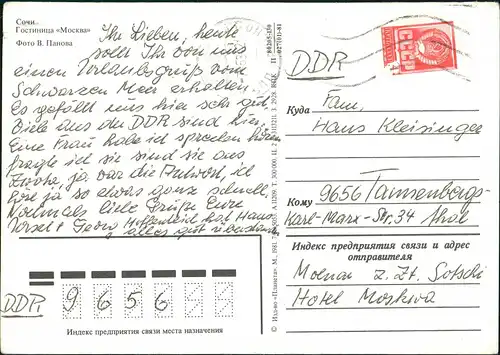 Сочи
Гостиница «Москва»
Фото В. Панова
Ihr Lieben, heute
sollt Ihr von uns
einen Urlaubsgruß vom
Schwarzen Meer erhalten.
Es gefällt uns hier sehr gut.
Viele aus der DDR sind hier,
Eine Frau habe ich sprechen hören
fragte ich sie sind sie aus
Zwota, ja war die Antwort, ich
höre ja so etwas ganz schnell.
Nochmals liebe Grüße Eure
Georg Hoffentlich hat Hans
alles gut überstanden
DDR 9 6 5 6
Индекс предприятия связи места назначения
© Изд-во «Планета», М., 1981.
DDR
СССР
Куда
Fam,
Hans Kleisinger
Кому 9656 Tannenbergs-
Karl-Marx-Str. 34 thal
Индекс предприятия связи и адрес
отправителя
z. Zt. Sotschi
Hotel Moskwa